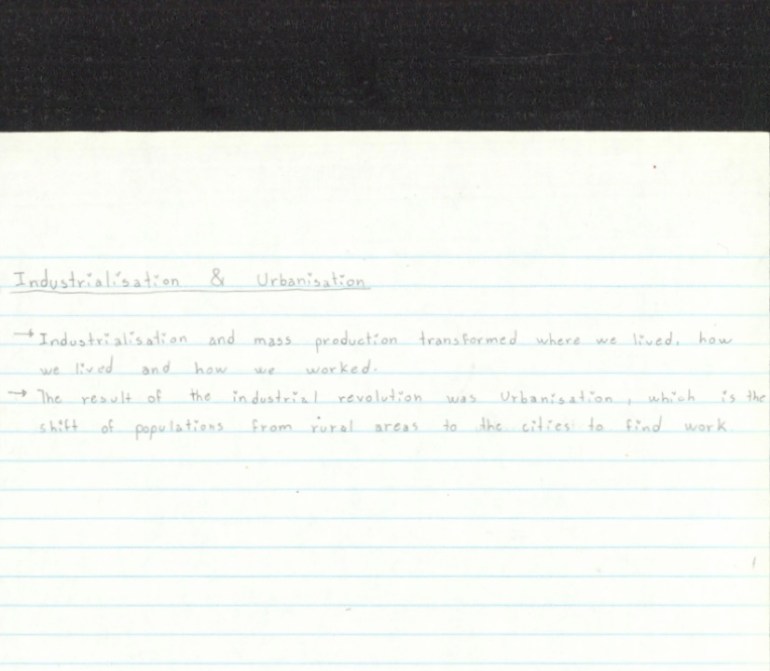 Industrialisation & Urbanisation
→ Industrialisation and mass production transformed where we lived, how
we lived and how we worked.
→ The result of the industrial revolution was Urbanisation, which is the
shift of populations from rural areas to the cities to find work